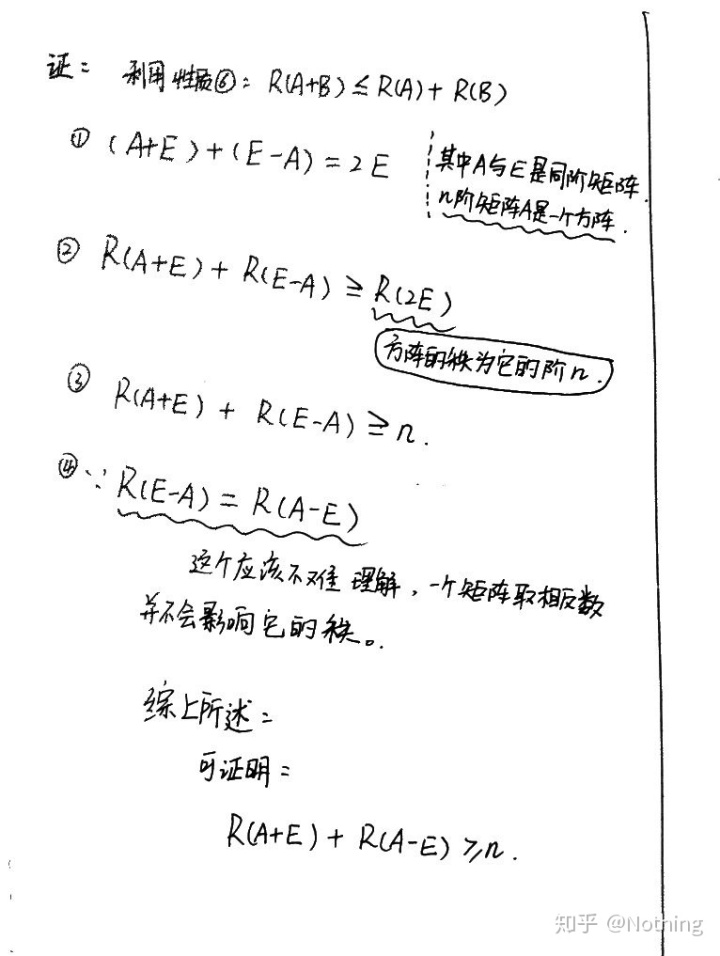 证: 利用性质⑥: R(A+B) ≤ R(A) + R(B)
① (A+E) + (E-A) = 2E
其中A与E是同阶矩阵.
n阶矩阵A是一个方阵.
② R(A+E) + R(E-A) ≥ R(2E)
方阵的秩为它的阶n.
③ R(A+E) + R(E-A) ≥ n.
④ ∵ R(E-A) = R(A-E)
这个应该不难理解, 一个矩阵取相反数
并不会影响它的秩。
综上所述:
可证明:
R(A+E) + R(A-E) ≥ n.
知乎 @Nothing